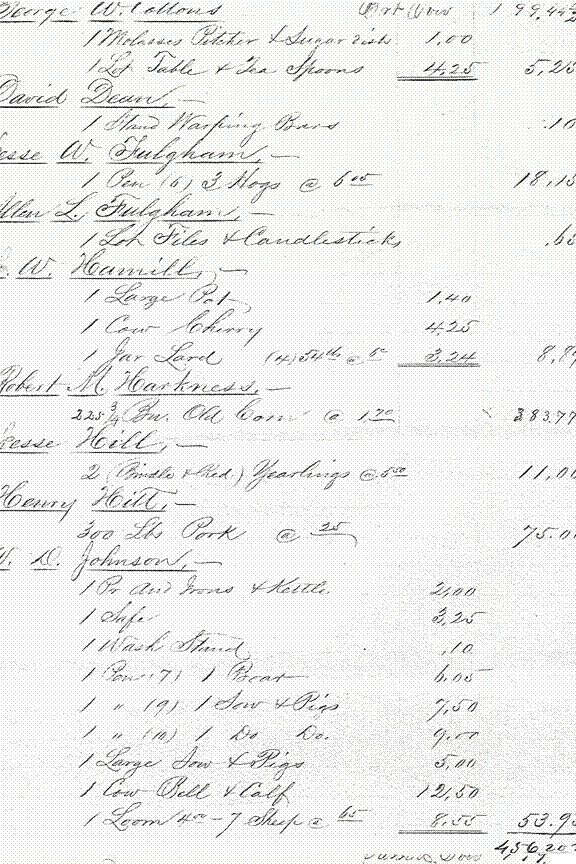 George W. Collons Brt Over 199,44
1 Molasses Pitcher & Sugar dish 1.00
1 Lot Table & Tea Spoons 4,25 5,25
David Dean,—
1 Hand Warping Bars .10
esse W. Fulgham,—
1 Pen (6) 3 Hogs @ 6 05 18,15
Allen L. Fulgham,—
1 Lot Files & Candlesticks
W. Hamill,—
1 Large Pot 1,40
1 Cow Cherry 4,25
1 Jar Lard (4) 54 lb @ 6c 3,24 8,89
Robert M. Harkness,—
225 3/4 Bu. Old Corn @ 1,70 383,77
Jesse Hill,—
2 (Brindle & Red.) Yearlings @ 5 50 11,00
Henry Hill,—
300 Lbs Pork @ 25 75.0
W. D. Johnson,—
1 Pr And Irons & Kettle 2,00
1 Safe 3,25
1 Wash Stand ,10
1 Pen (7) 1 Boar 6,05
1 " (9) 1 Sow & Pigs 7,50
1 " (10) 1 Do Do. 9,00
1 Large Sow & Pigs 5,00
1 Cow Bell & Calf 12,50
1 Loom 4 00 – 7 Sheep @ 65 8,55 53.95
456,20